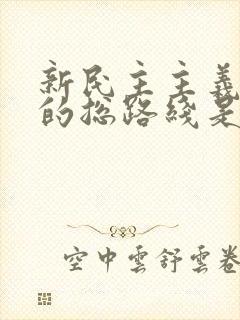 新民主主義
的总路綫是
空中雲舒雲卷